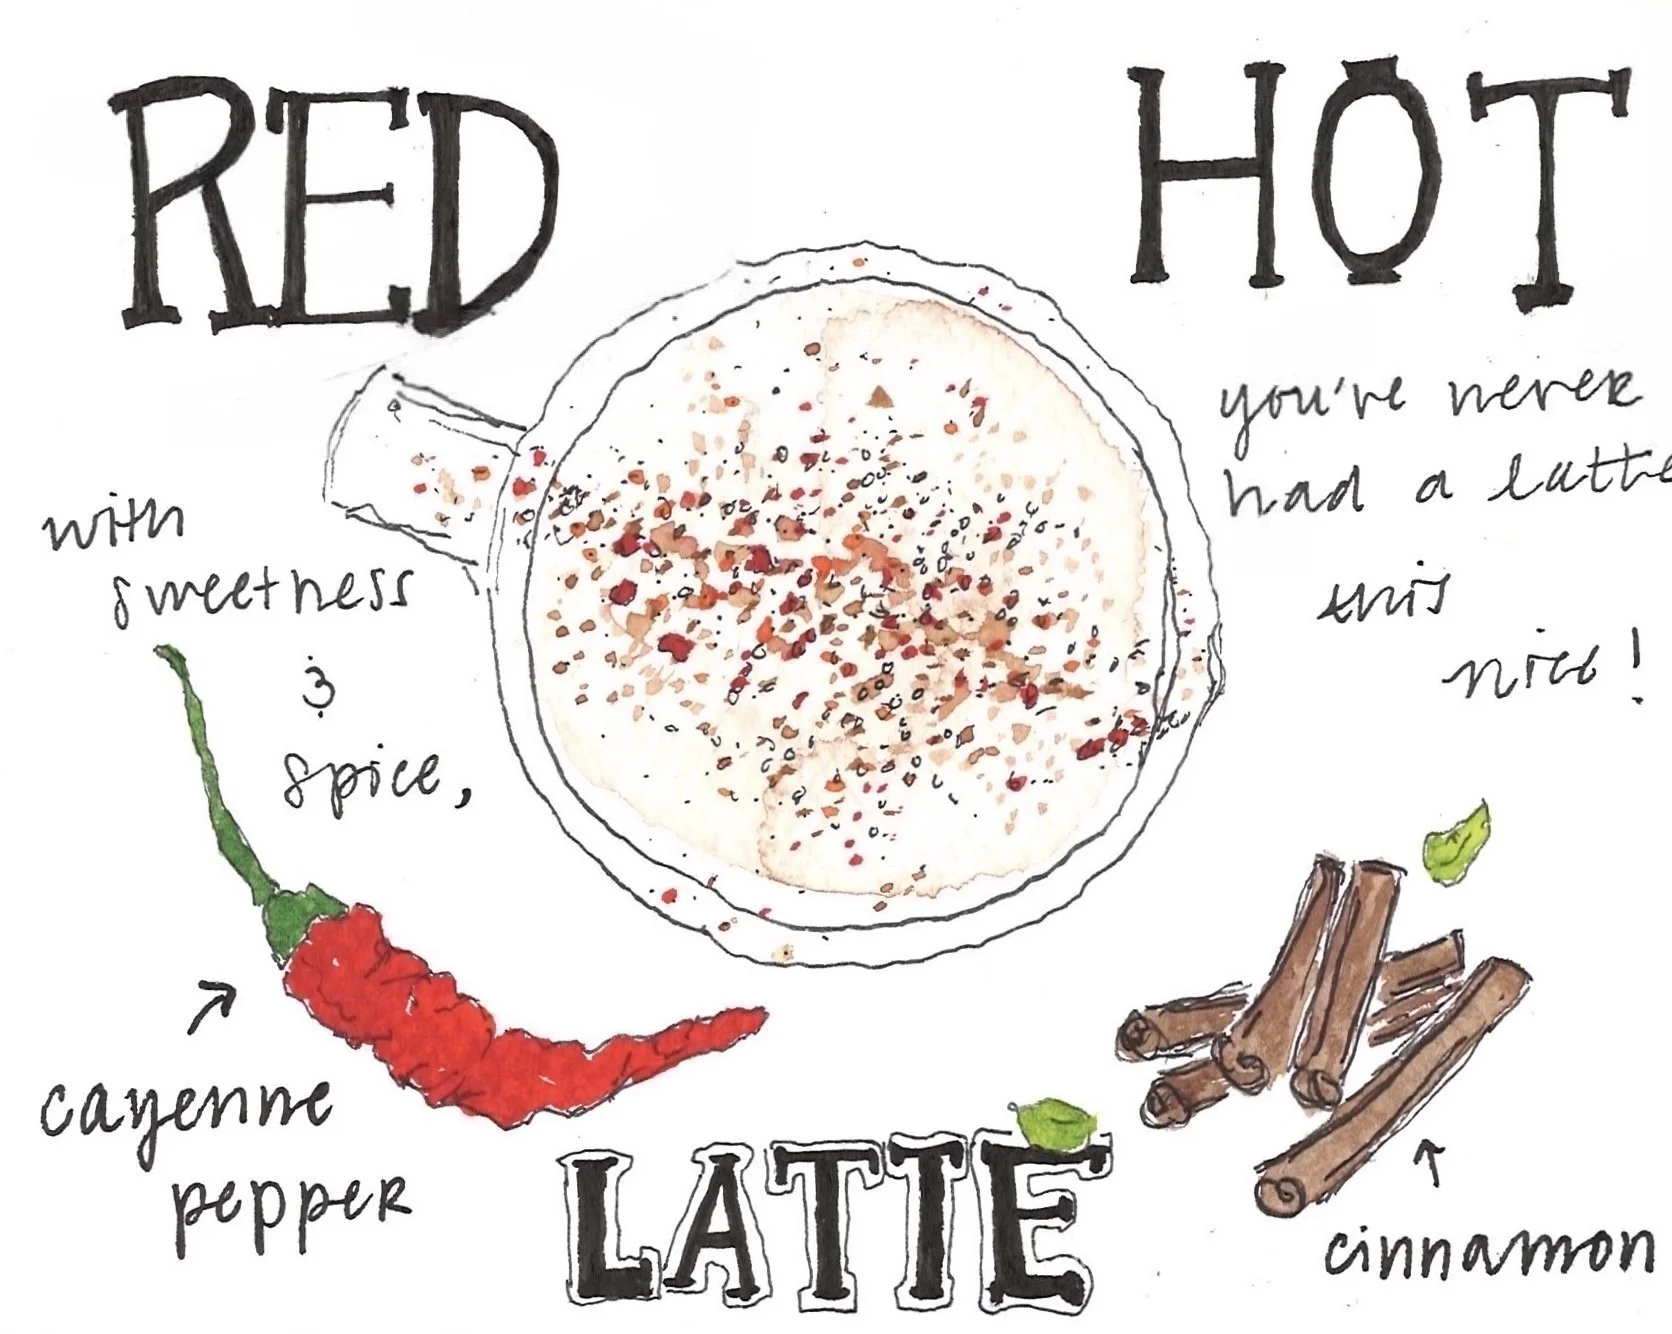 RED HOT
with
sweetness
&
spice,
you've never
had a latte
this
nice!
cayenne
pepper
LATTE
cinnamon